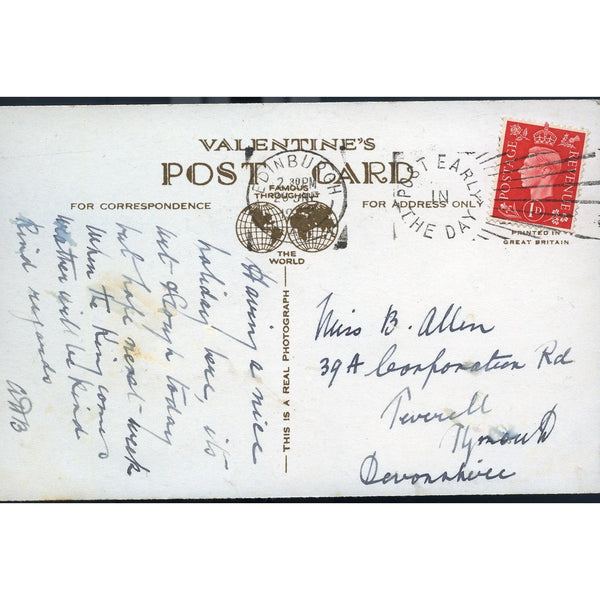 VALENTINE'S
POST CARD
FAMOUS
THROUGHOUT
THE
WORLD
FOR CORRESPONDENCE
FOR ADDRESS ONLY
EDINBURGH
2.30PM
POST EARLY
IN
THE DAY
POSTAGE
REVENUE
1D
PRINTED IN
GREAT BRITAIN
THIS IS A REAL PHOTOGRAPH
Having a nice
holiday here, its
wet & rough today
but hope next week
when the King comes
weather will be kind
Kind regards
Miss B. Allen
39A Corporation Rd
Peverell
Plymouth
Devonshire